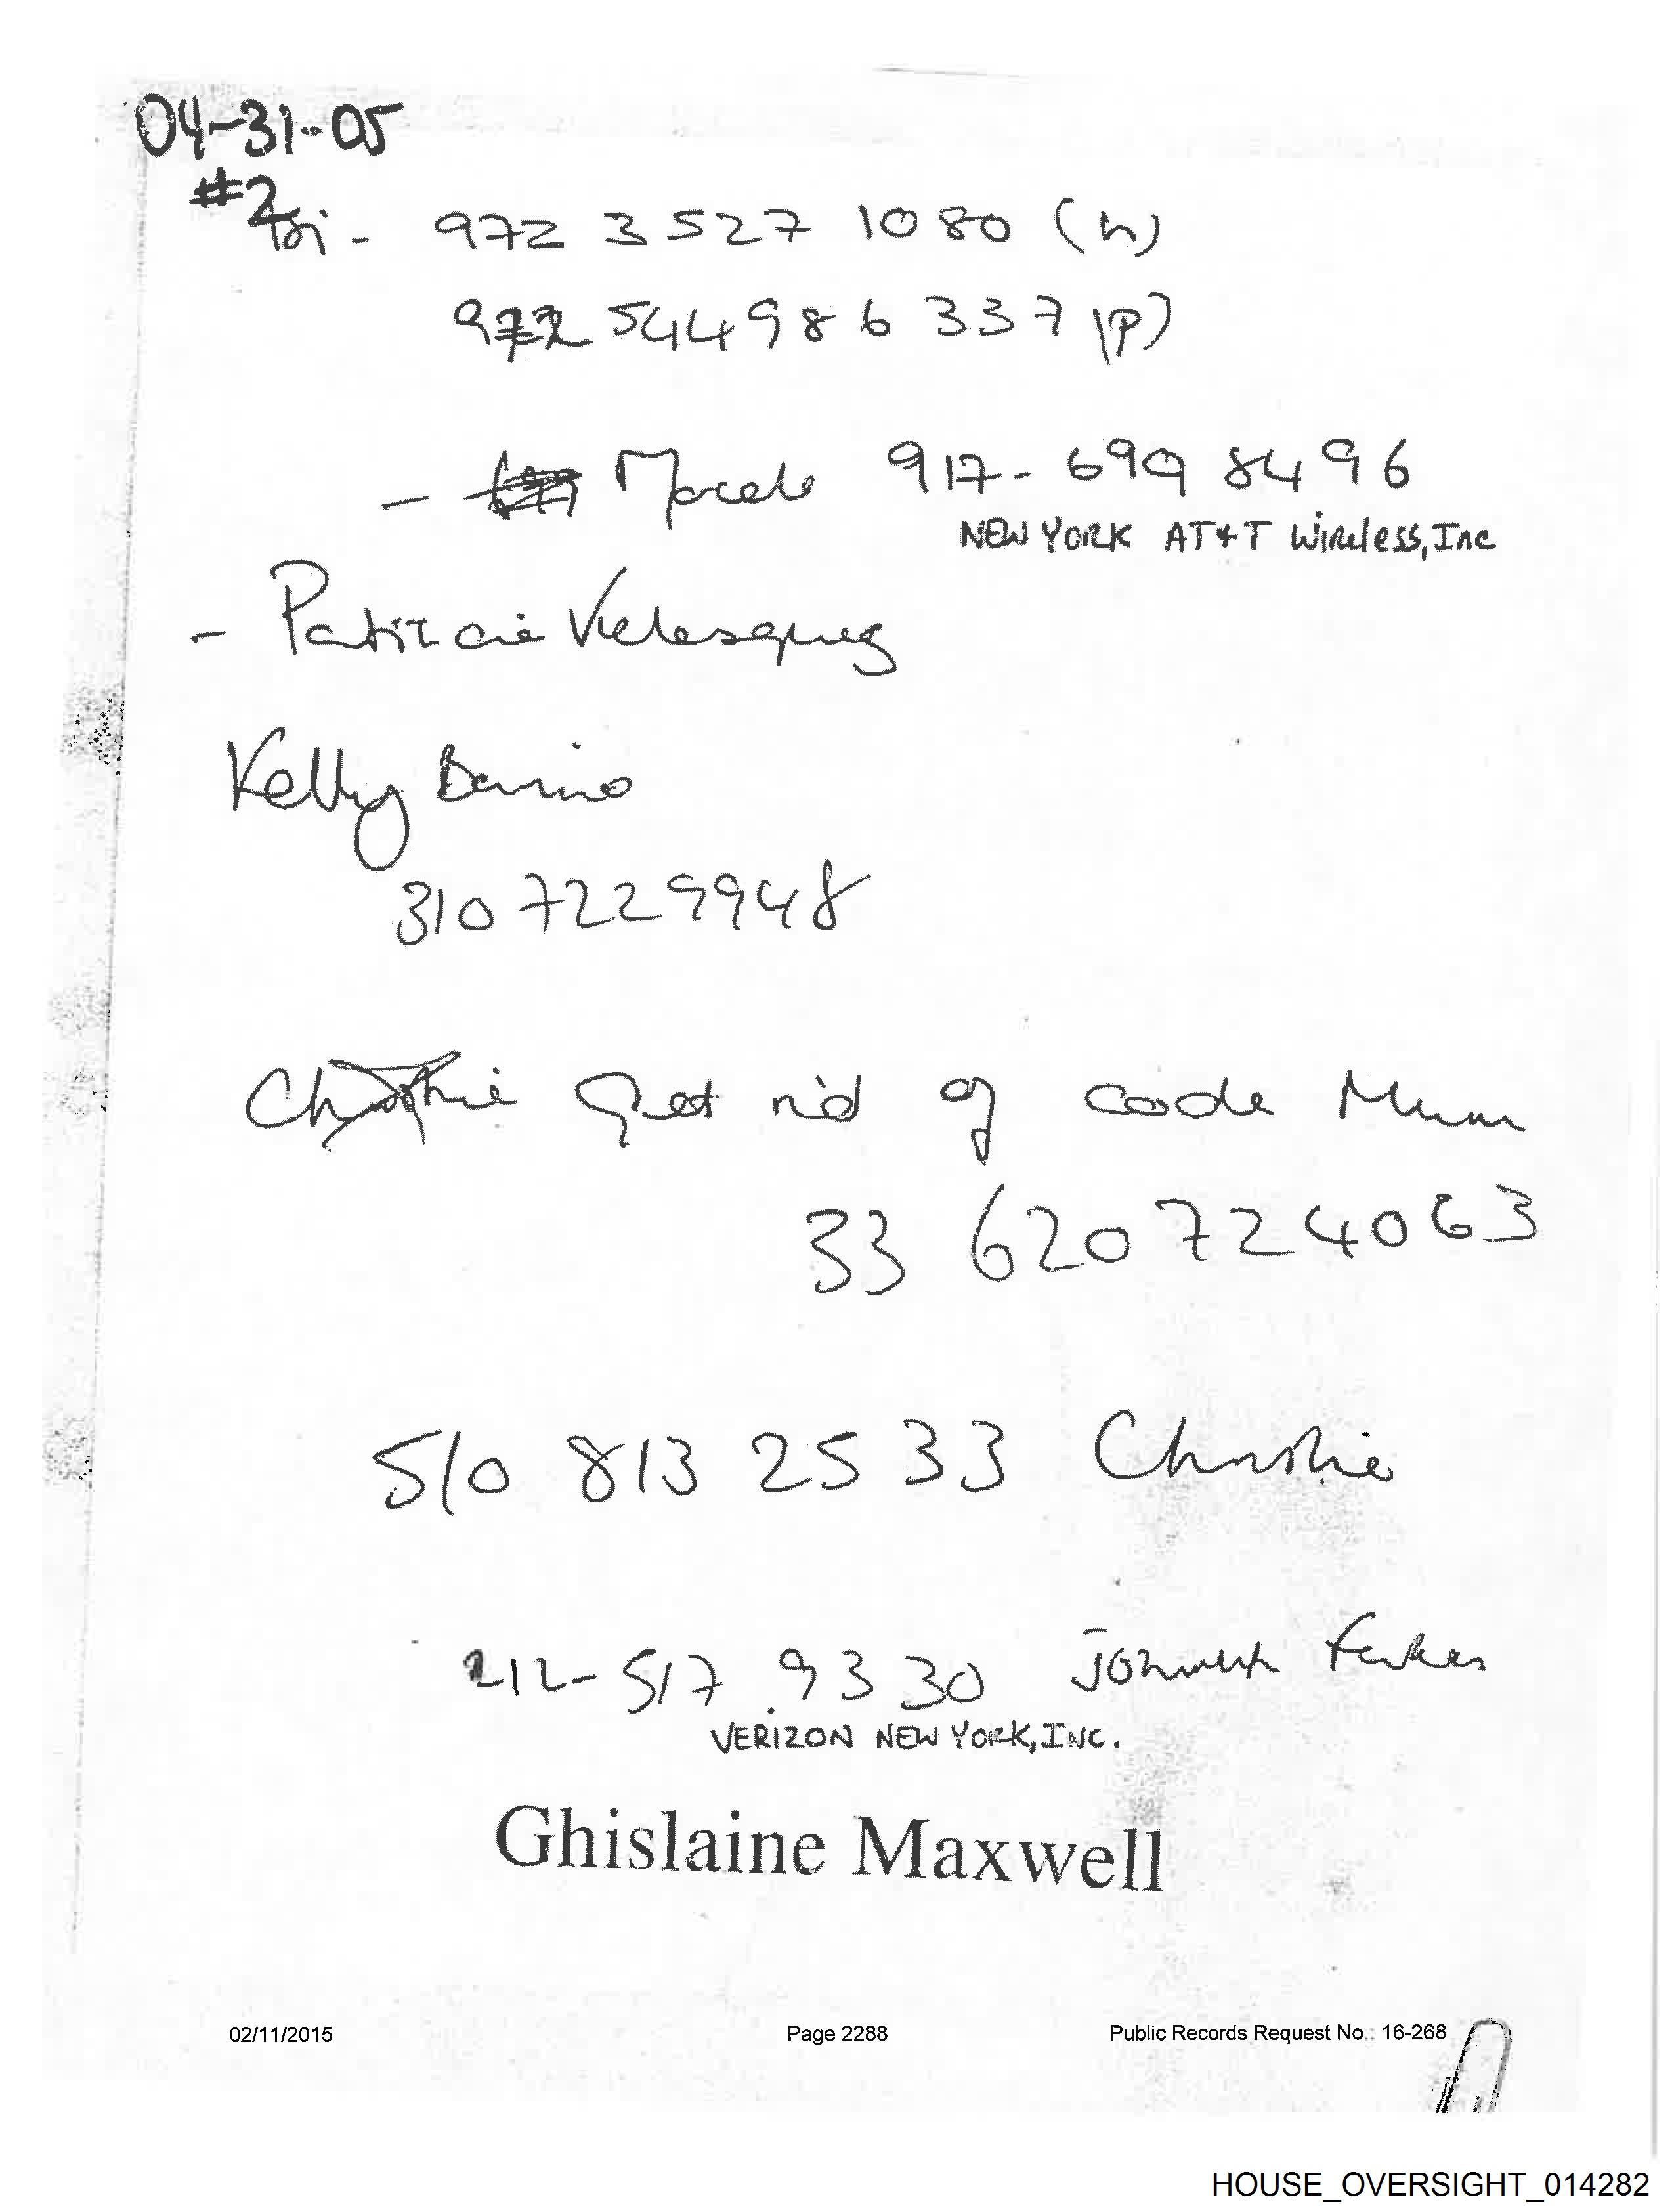 04-31-05
#2
- 972 3 527 1080 (h)
972 544 986 337 (p)
- 917-699 8496
NEW YORK AT&T Wireless, Inc
- Patizcia Velesquez
Kelly
310 7229948
get rid of code Mum
33 620724063
510 813 2533 Christie
212-517 9330
VERIZON NEW YORK, INC.
Ghislaine Maxwell
02/11/2015 Page 2288 Public Records Request No.: 16-268
HOUSE_OVERSIGHT_014282